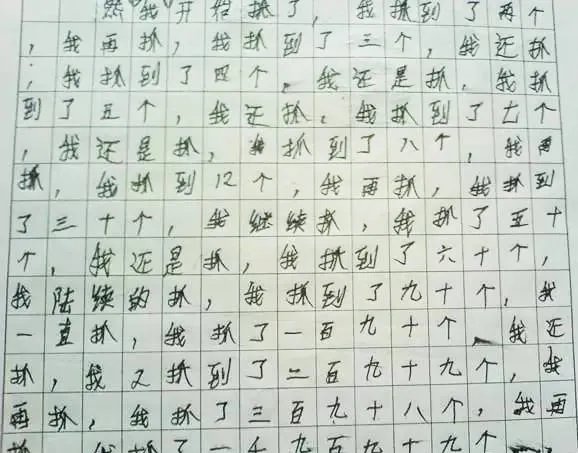 然我开始抓了，我抓到了两个
，我再抓，我抓到了三个，我还抓
，我抓到了四个，我还是抓，我抓
到了五个，我还抓，我抓到了七个
，我还是抓，我抓到了八个，我再
抓，我抓到12个，我再抓，我抓到
了三十个，我继续抓，我抓了五十
个，我还是抓，我抓到了六十个，
我陆续的抓，我抓到了九十个，我
一直抓，我抓了一百九十个，我还
抓，我又抓到了二百九十九个，我
再抓，我抓了三百九十八个，我再
抓，我抓了一千九百九十九个